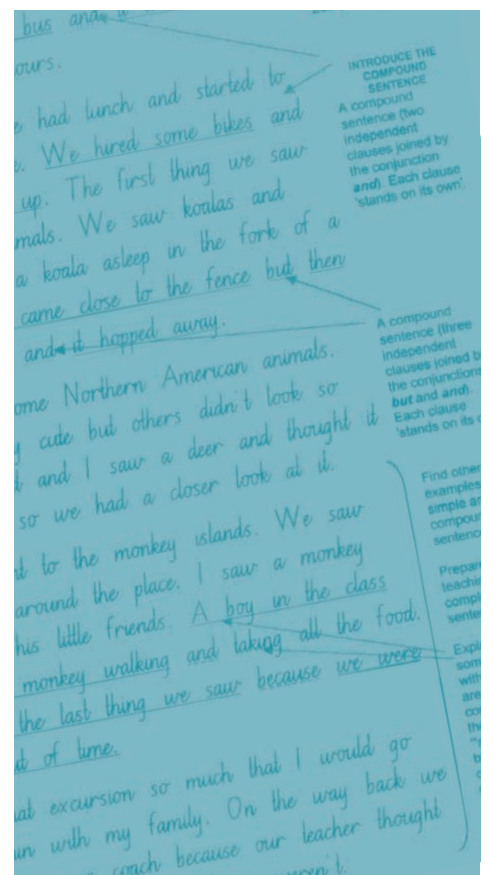 bus and
ours.
e had lunch and started to
e. We hired some bikes and
up. The first thing we saw
mals. We saw koalas and
a koala asleep in the fork of a
came close to the fence but then
and it hopped away.
ome Northern American animals.
y cute but others didn't look so
d and I saw a deer and thought it
so we had a closer look at it.
nt to the monkey islands. We saw
around the place. I saw a monkey
his little friends. A boy in the class
monkey walking and taking all the food.
the last thing we saw because we were
ut of time.
at excursion so much that I would go
un with my family. On the way back we
coach because our teacher thought
weren't.
INTRODUCE THE
COMPOUND
SENTENCE
A compound
sentence (two
independent
clauses joined by
the conjunction
and). Each clause
'stands on its own'.
A compound
sentence (three
independent
clauses joined b
the conjunctions
but and and).
Each clause
'stands on its o
Find other
examples
simple an
compoun
sentenc
Prepare
teachin
comple
sente
Expl
som
with
are
co
the
"s
b